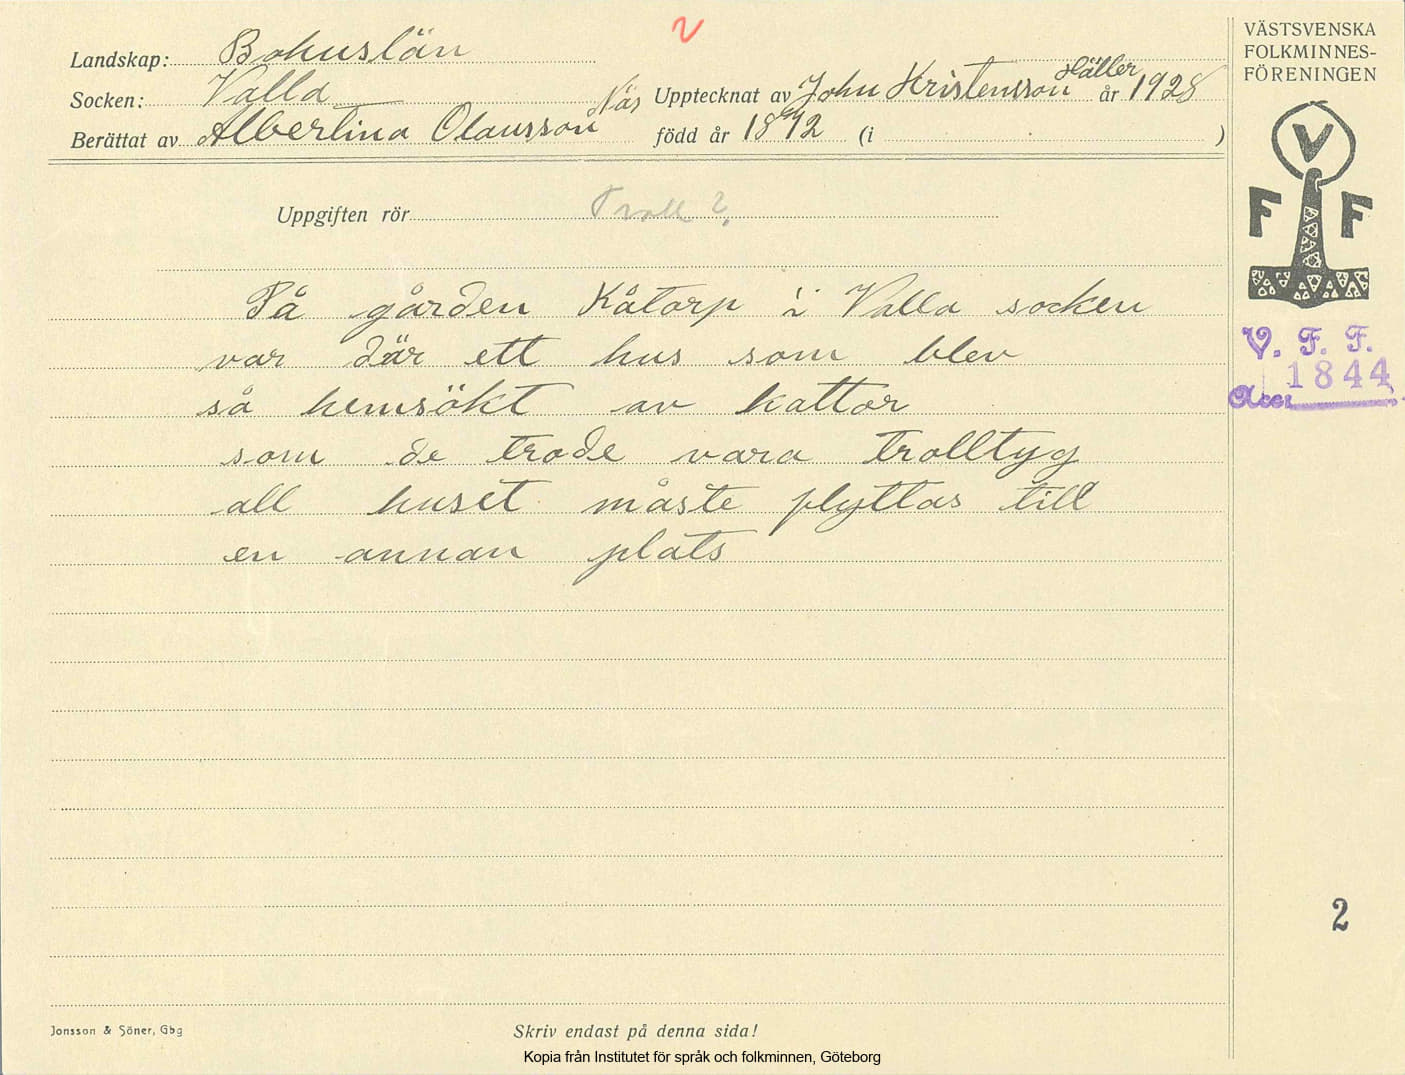 2
Landskap: Bohuslän
Socken: Valla
Berättat av Albertina Olausson Näs
Upptecknat av John Kristensson Häller år 1928
född år 1892 (i )
Uppgiften rör Troll?
På gården Kåtorp i Valla socken
var där ett hus som blev
så hemsökt av kattor
som de trode vara trolltyg
all huset måste flyttas till
en annan plats
VÄSTSVENSKA
FOLKMINNES-
FÖRENINGEN
V
F F
V. F. F.
1844
Acc.
2
Jonsson & Söner, Gbg
Skriv endast på denna sida!
Kopia från Institutet för språk och folkminnen, Göteborg